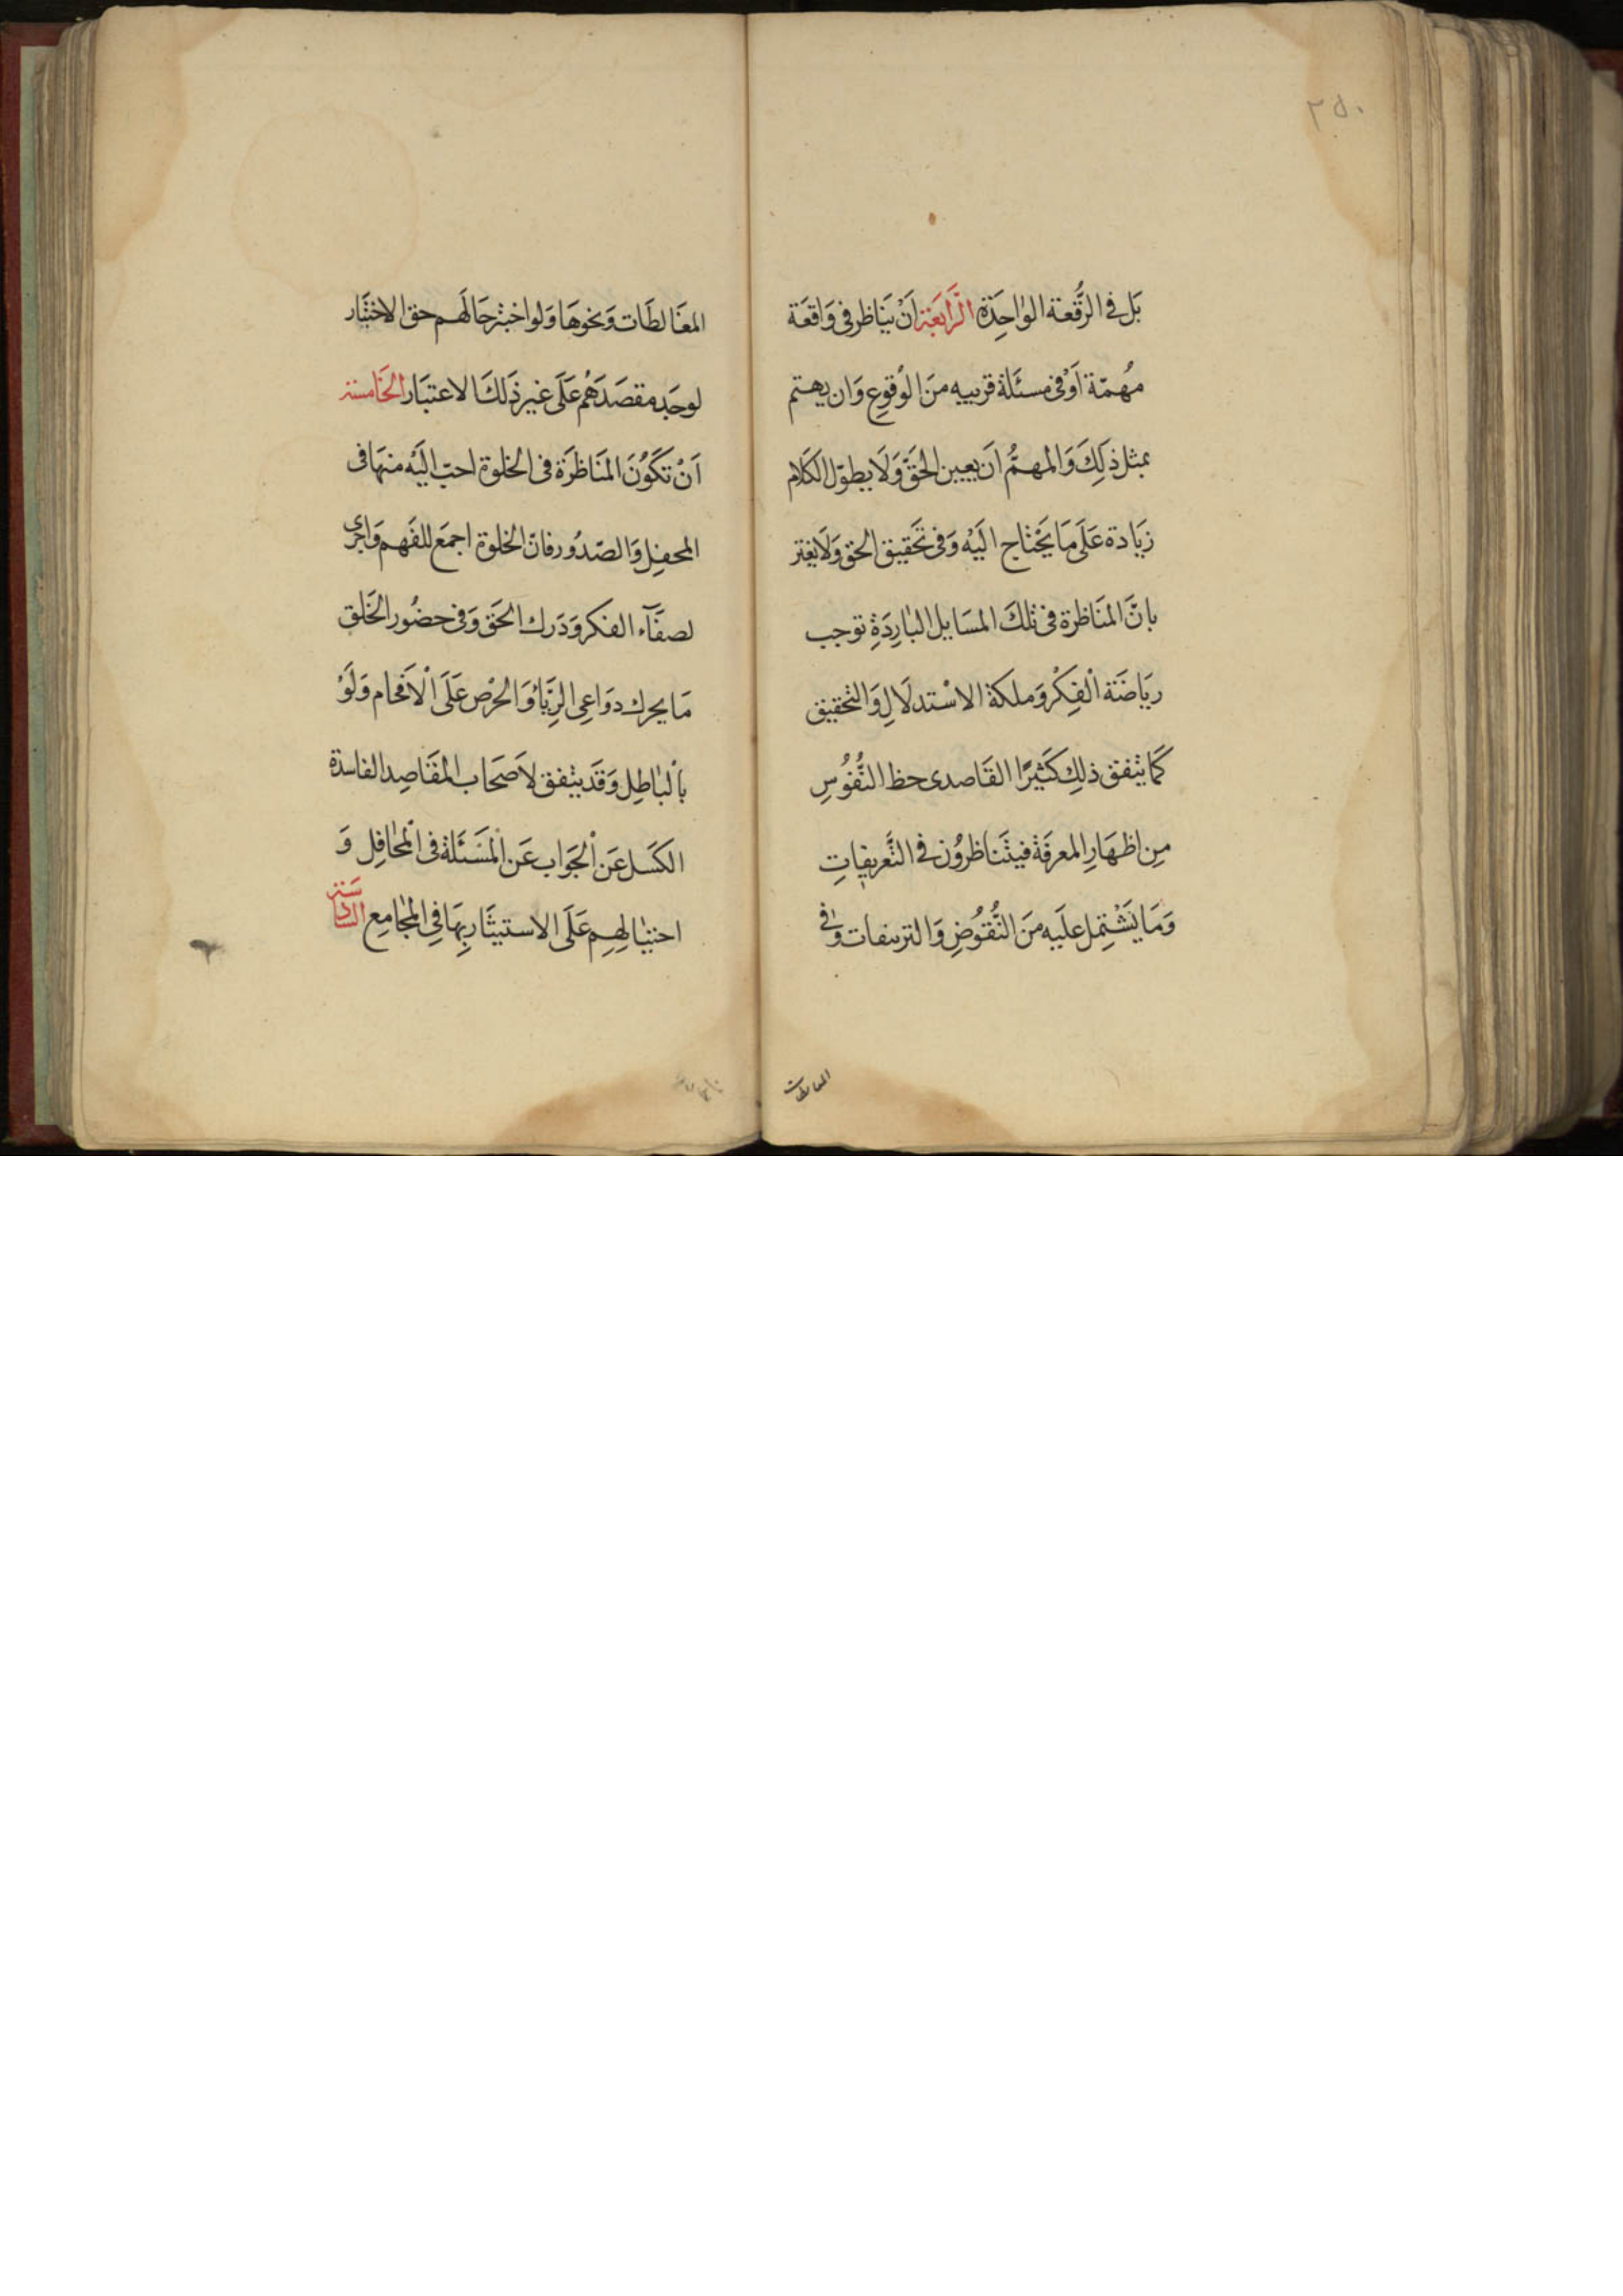 ٢٥٠
بَل فِى الرُّقعة الوٰاحِدَةِ الَّرابعَة اَنْ يَناظر فى وَاقعَة
مُهمّة اَوْ فى مسئَلة قريبه منَ الوُقوعِ وَان يهتم
بمثل ذٰلِكَ وَالمهمُّ اَن يعين الحَقَّ وَلَا يطوّل الكَلام
زيَادة عَلَى مَا يَحْتاج اليَه وَفى تَحقيق الحق وَلَا يغتر
بانَّ المنَاظرة فى تلكَ المسَايل البٰارِدَةِ توجب
ريَاضَة اْلفِكْر وَملكة الاسْتدلَالِ وَالتحقيق
كَما يتفق ذلِكَ كَثيرًا القَاصدى حظ النُّفُوُسِ
مِن اظهَارِ المعرفَة فيتَناظروُن فِى التَّعريفٖاتِ
وَمَا يَشْتمِل علَيه منَ النُّقوُضِ وَالتزييفات وَفى
المغالطات
المغَالطَات وَنحوهَا وَلو اختبر حَالَهم حق الاختبَار
لوجَد مقصَدَهُم عَلَى غير ذَلكَ الاعتبَار الخَامسَة
اَنْ تكَوُنَ المنَاظرَة فى الخلوة احبّ اليَه منهَا فى
المحفِل وَالصّدُور فانّ الخلوة اجمَع للفَهم وَاحرى
لصفَآء الفكر وَدَرك الحَق وَفى حضُور الخَلق
مَا يحرك دوَاعِى الرِّيَآ وَالحرْص عَلَى اْلاَفحَام وَلَوْ
باْلبٰاطِل وَقَد يتفق لاَصحَاب المقَاصِد الفاسدة
الكسَل عَن اْلجَواب عَن اْلمَسَئَلة فى اْلمحٰافِل وَ
احتيٰالِهِم عَلَى الاستيثَار بِهَا فِى المجٰامِع السَّادسَة